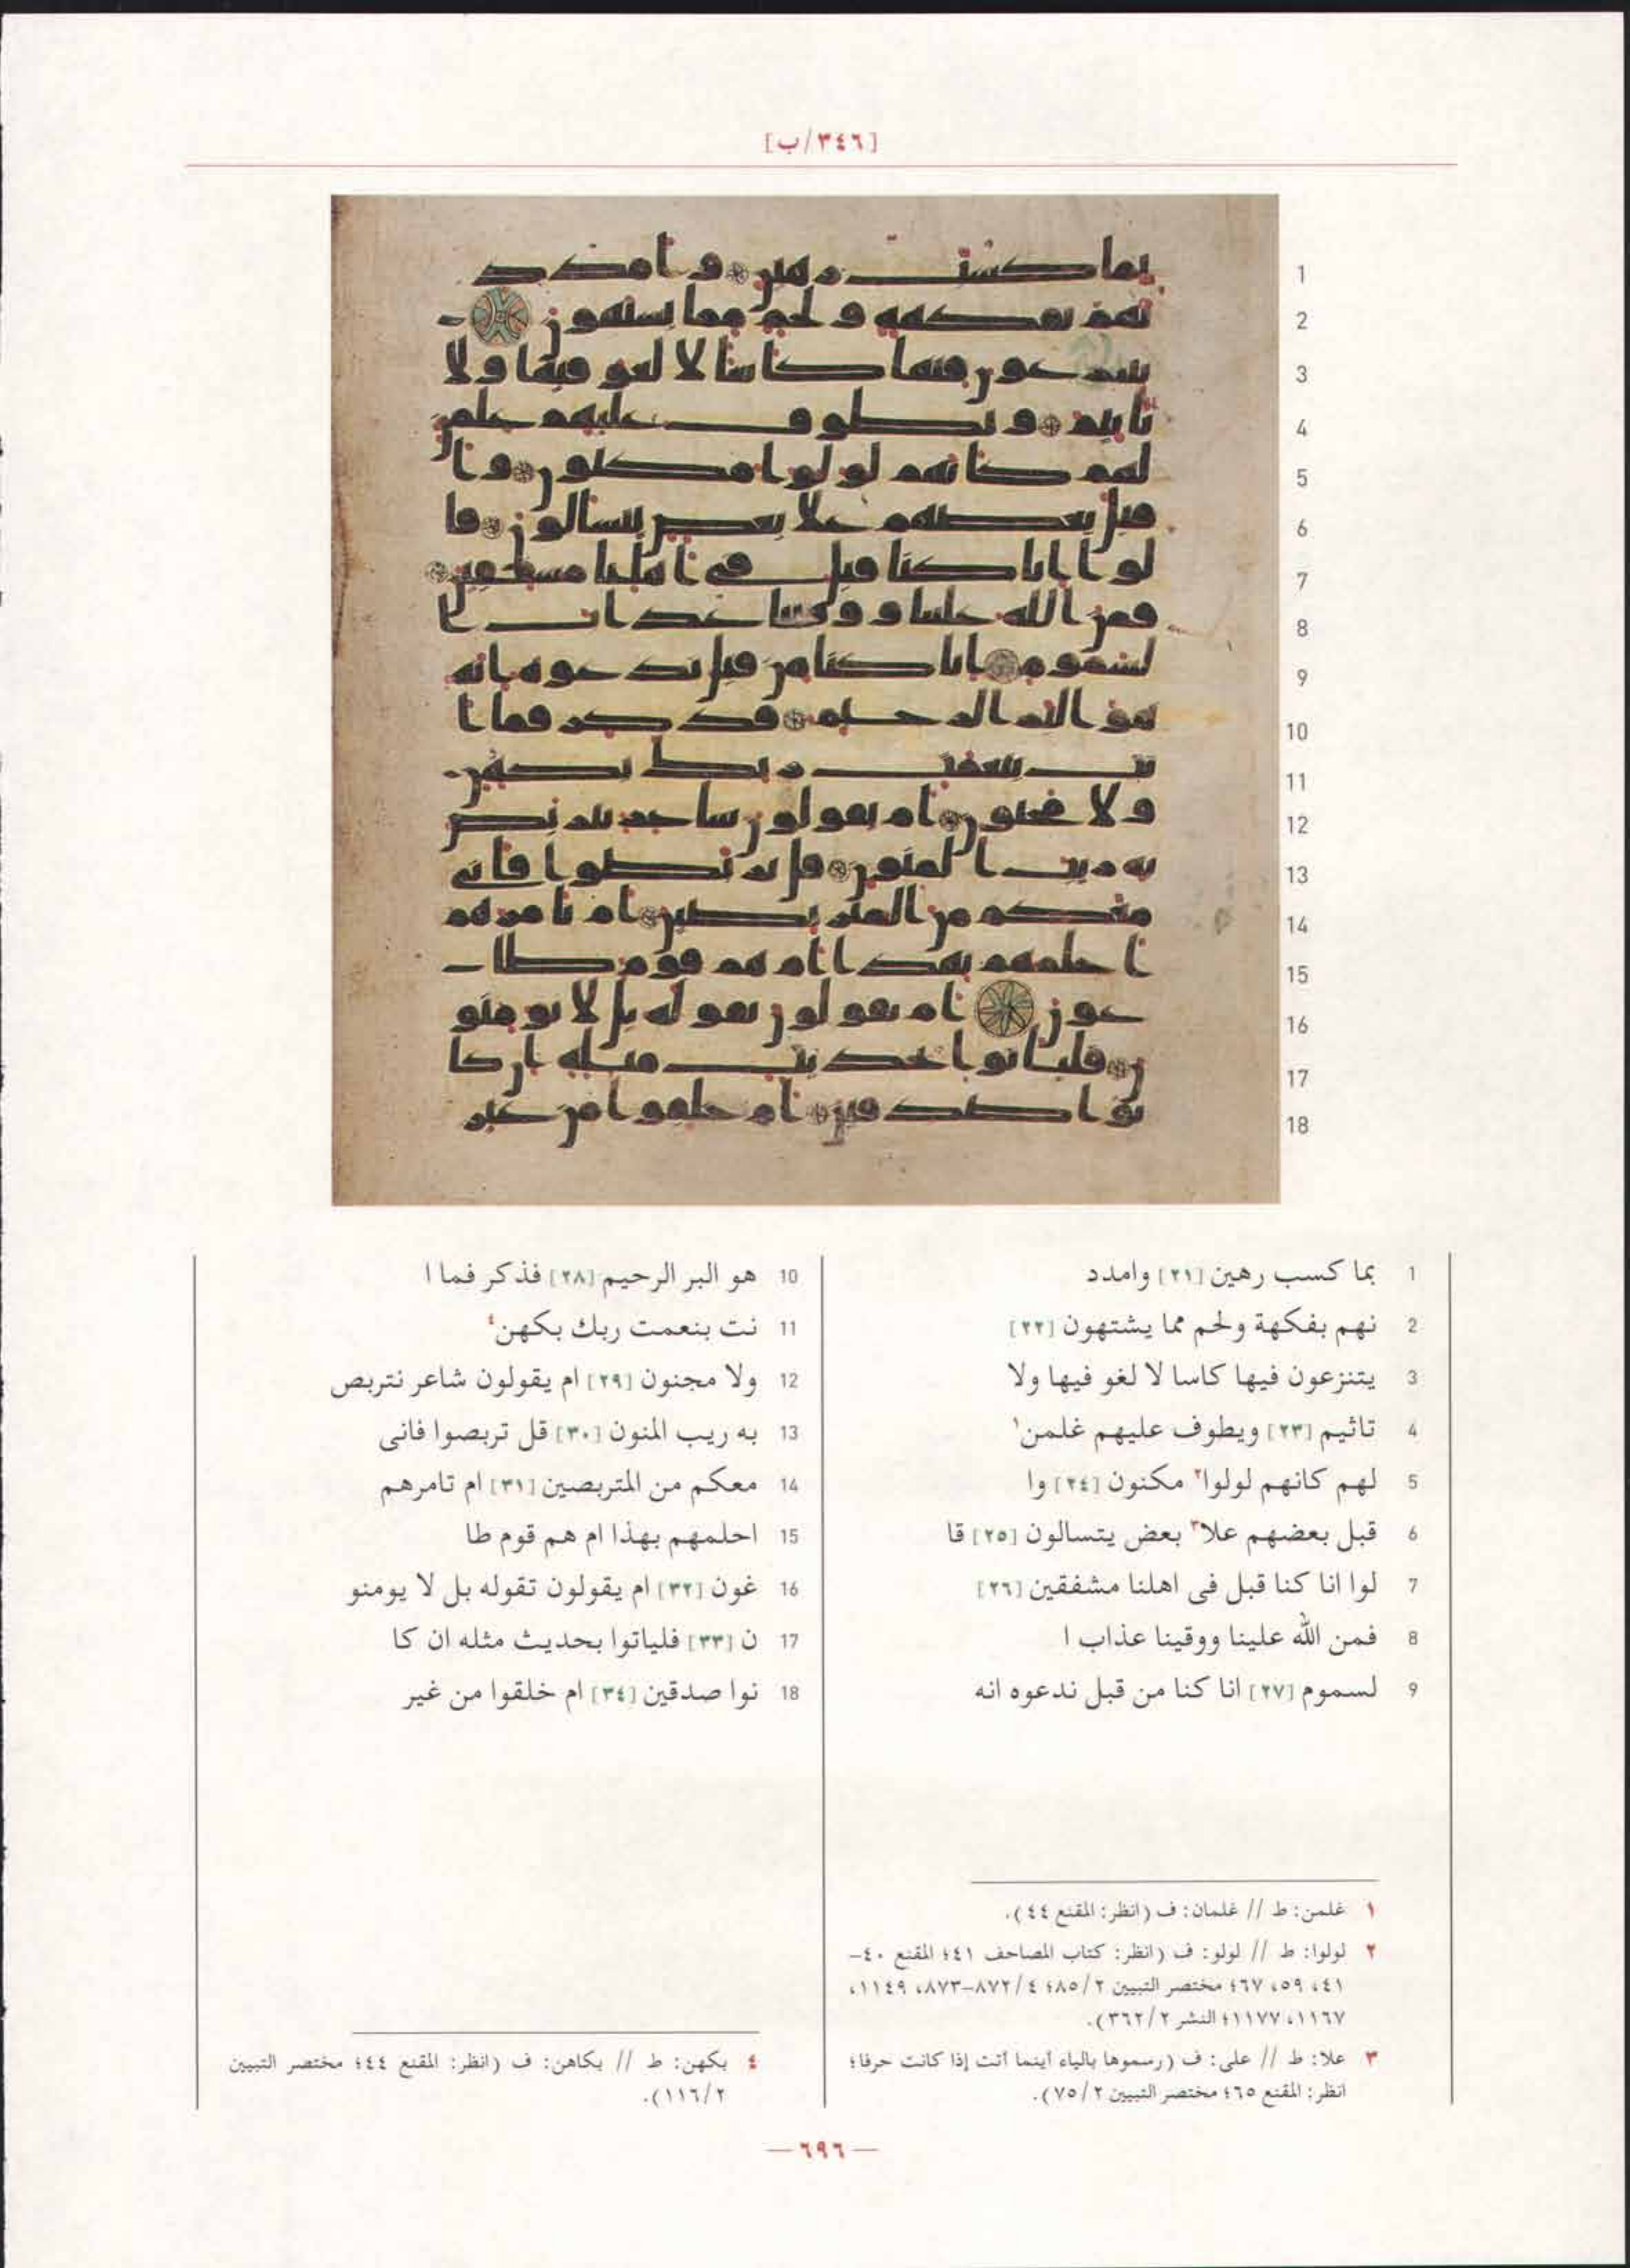 [٣٤٦/ب]
1 بما كسب رهين [٢١] وامدد
2 نهم بفكهة ولحم مما يشتهون [٢٢]
3 يتنزعون فيها كاسا لا لغو فيها ولا
4 تاثيم [٢٣] ويطوف عليهم غلمن١
5 لهم كانهم لولوا٢ مكنون [٢٤] وا
6 قبل بعضهم علا٣ بعض يتسالون [٢٥] قا
7 لوا انا كنا قبل فى اهلنا مشفقين [٢٦]
8 فمن الله علينا ووقينا عذاب ا
9 لسموم [٢٧] انا كنا من قبل ندعوه انه
10 هو البر الرحيم [٢٨] فذكر فما ا
11 نت بنعمت ربك بكهن٤
12 ولا مجنون [٢٩] ام يقولون شاعر نتربص
13 به ريب المنون [٣٠] قل تربصوا فانى
14 معكم من المتربصين [٣١] ام تامرهم
15 احلمهم بهذا ام هم قوم طا
16 غون [٣٢] ام يقولون تقوله بل لا يومنو
17 ن [٣٣] فلياتوا بحديث مثله ان كا
18 نوا صدقين [٣٤] ام خلقوا من غير
١ غلمن: ط // غلمان: ف (انظر: المقنع ٤٤).
٢ لولوا: ط // لولو: ف (انظر: كتاب المصاحف ٤١؛ المقنع ٤٠-
٤١، ٥٩، ٦٧؛ مختصر التبيين ٨٥/٢؛ ٨٧٢/٤-٨٧٣، ١١٤٩،
١١٦٧، ١١٧٧؛ النشر ٣٦٢/٢).
٣ علا: ط // على: ف (رسموها بالياء أينما أتت إذا كانت حرفا؛
انظر: المقنع ٦٥؛ مختصر التبيين ٧٥/٢).
٤ بكهن: ط // بكاهن: ف (انظر: المقنع ٤٤؛ مختصر التبيين
١١٦/٢).
— ٦٩٦ —